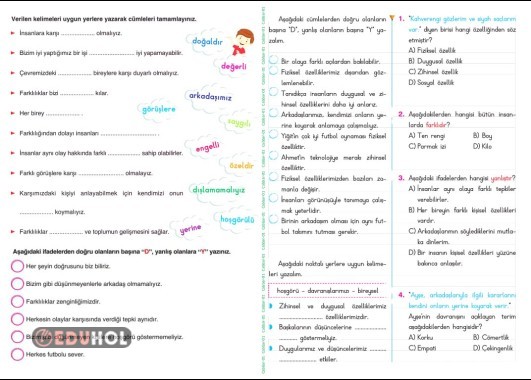 Verilen kelimeleri uygun yerlere yazarak cümleleri tamamlayınız.
İnsanlara karşı .................. olmalıyız.
Bizim iyi yaptığımız bir işi .................. iyi yapamayabilir.
Çevremizdeki .................. bireylere karşı duyarlı olmalıyız.
Farklılıklar bizi .................. kılar.
Her birey .................. .
Farklılığından dolayı insanları .................. .
İnsanlar aynı olay hakkında farklı .................. sahip olabilirler.
Farklı görüşlere karşı .................. olmalıyız.
Karşımızdaki kişiyi anlayabilmek için kendimizi onun
.................. koymalıyız.
Farklılıklar .................. ve toplumun gelişmesini sağlar.
doğaldır
değerli
arkadaşımız
görüşlere
saygılı
engelli
özeldir
dışlamamalıyız
hoşgörülü
yerine
Aşağıdaki ifadelerden doğru olanların başına "D", yanlış olanlara "Y" yazınız.
Her şeyin doğrusunu biz biliriz.
Bizim gibi düşünmeyenlerle arkadaş olmamalıyız.
Farklılıklar zenginliğimizdir.
Herkesin olaylar karşısında verdiği tepki aynıdır.
göstermemeliyiz.
Herkes futbolu sever.
EDUHOL
Aşağıdaki cümlelerden doğru olanların
başına "D", yanlış olanların başına "Y" ya-
zalım.
Bir olaya farklı açılardan bakılabilir.
Fiziksel özelliklerimiz dışarıdan göz-
lemlenebilir.
Tanıdıkça insanların duygusal ve zi-
hinsel özelliklerini daha iyi anlarız.
Arkadaşlarımızı, kendimizi onların ye-
rine koyarak anlamaya çalışmalıyız.
Yiğit'in çok iyi futbol oynaması fiziksel
özelliktir.
Ahmet'in teknolojiye merakı zihinsel
özelliktir.
Fiziksel özelliklerimizden bazıları za-
manla değişir.
İnsanları görünüşüyle tanımaya çalış-
mak yeterlidir.
Birinin arkadaşım olması için aynı fut-
bol takımını tutması gerekir.
Aşağıdaki noktalı yerlere uygun kelime-
leri yazalım.
hoşgörü - davranışlarımızı - bireysel
Zihinsel ve duygusal özelliklerimiz
.................. özelliklerimizdir.
Başkalarının düşüncelerine ..................
.................. göstermeliyiz.
Duygularımız ve düşüncelerimiz ..................
.................. etkiler.
1. "Kahverengi gözlerim ve siyah saçlarım
var." diyen birisi hangi özelliğinden söz
etmiştir?
A) Fiziksel özellik
B) Duygusal özellik
C) Zihinsel özellik
D) Sosyal özellik
2. Aşağıdakilerden hangisi bütün insan-
larda farklıdır?
A) Ten rengi B) Boy
C) Parmak izi D) Kilo
3. Aşağıdaki ifadelerden hangisi yanlıştır?
A) İnsanlar aynı olaya farklı tepkiler
verebilirler.
B) Her bireyin farklı kişisel özellikleri
vardır.
C) Arkadaşlarımın söylediklerini mutla-
ka dinlerim.
D) Bir insanın kişisel özellikleri yüzüne
bakınca anlaşılır.
4. "Ayşe, arkadaşlarıyla ilgili kararlarını
kendini onların yerine koyarak verir."
Ayşe'nin davranışını açıklayan terim
aşağıdakilerden hangisidir?
A) Korku B) Cömertlik
C) Empati D) Çekingenlik